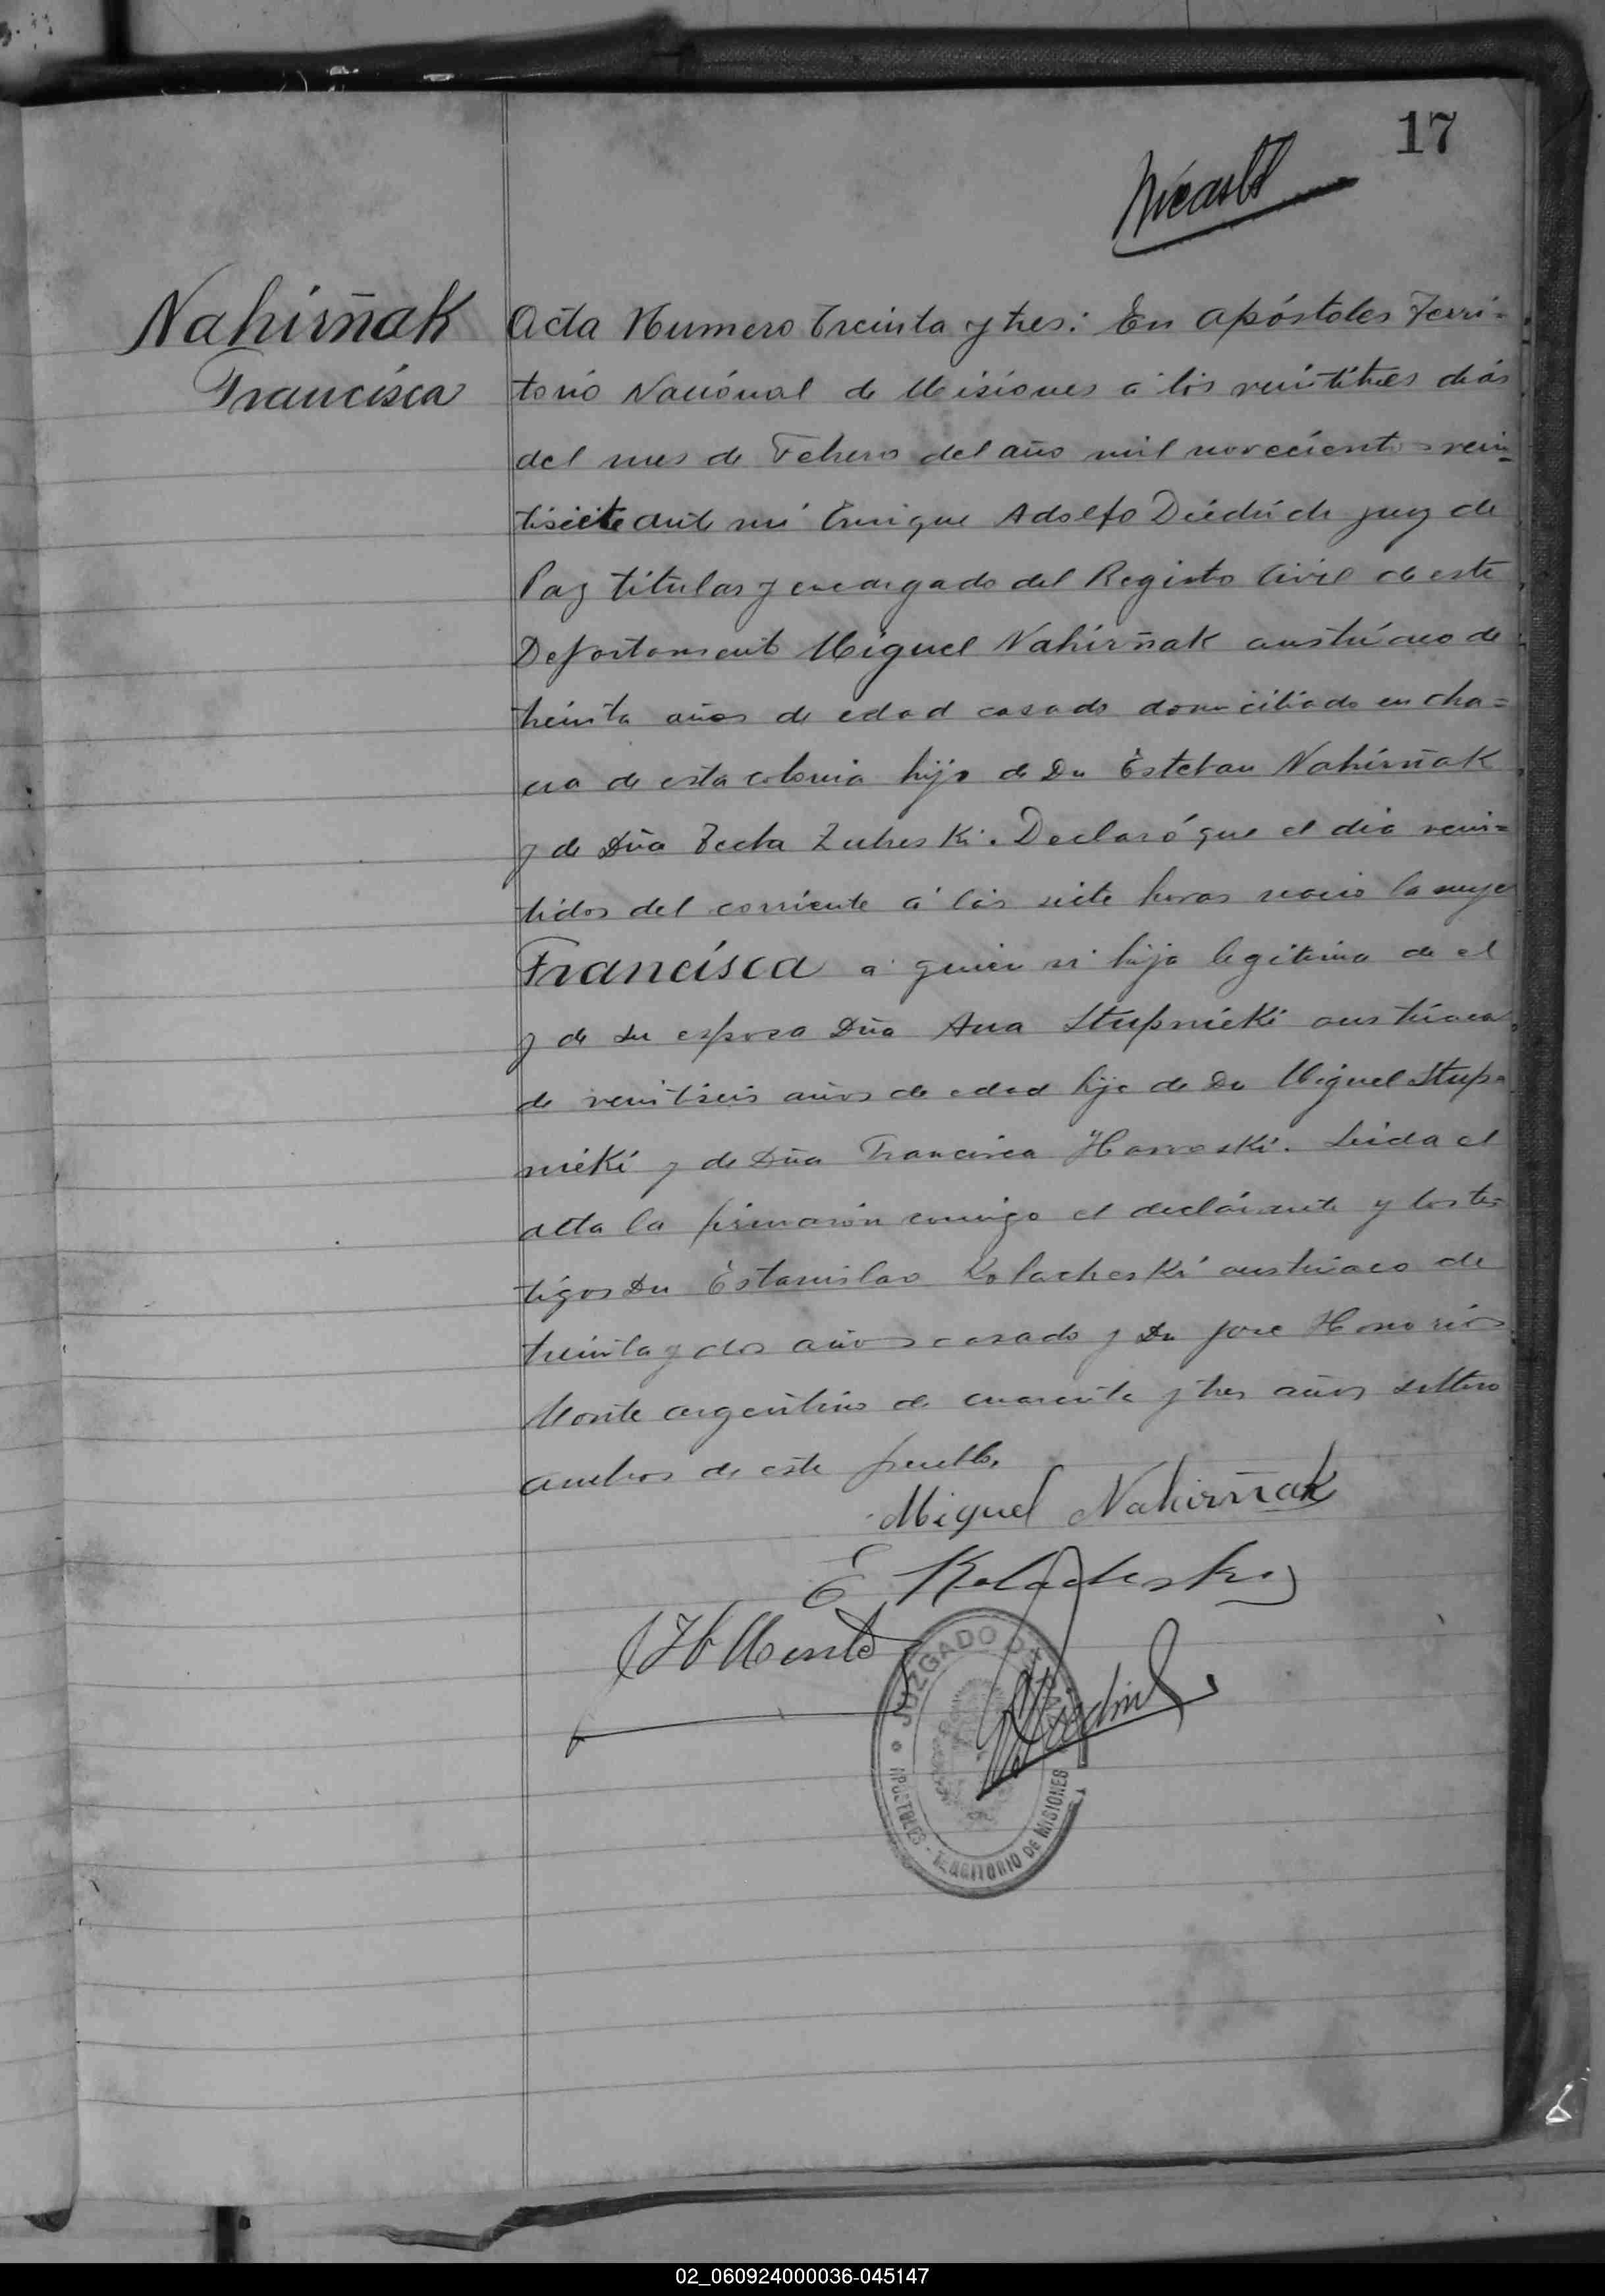 17
Nahirñak
Francisca
Acta Numero Treinta y tres: En apóstoles Terri-
torio Nacional de Misiones á los veintitrés dias
del mes de Febrero del año mil novecientos vein-
tisiete ante mi Enrique Adolfo Diedrich juez de
Paz titular y encargado del Registro Civil de este
Departamento Miguel Nahirñak austríaco de
treinta años de edad casado domiciliado en cha=
cra de esta colonia hijo de Dn Esteban Nahirñak
y de Dña Tecla Zubreski. Declaró que el dia vein=
tidos del corriente á las siete horas nacio la mujer
Francisca a quien vi hija legitima de el
y de su esposa Dña Ana Stupnicki austriaca
de veintiseis años de edad hija de Dn Miguel Stup-
nicki y de Dña Francisca Leida el
acta la firmaron conmigo el declarante y los tes-
tigos Dn Estanislao Kolacheski austriaco de
treinta y dos años casado y Dn Jose Honorio
Monte argentino de cuarenta y tres años soltero
ambos de este pueblo.
Miguel Nahirñak
E Kolacheski
JH Monte
JUZGADO DE PAZ
APOSTOLES - TERRITORIO DE MISIONES
02_060924000036-045147